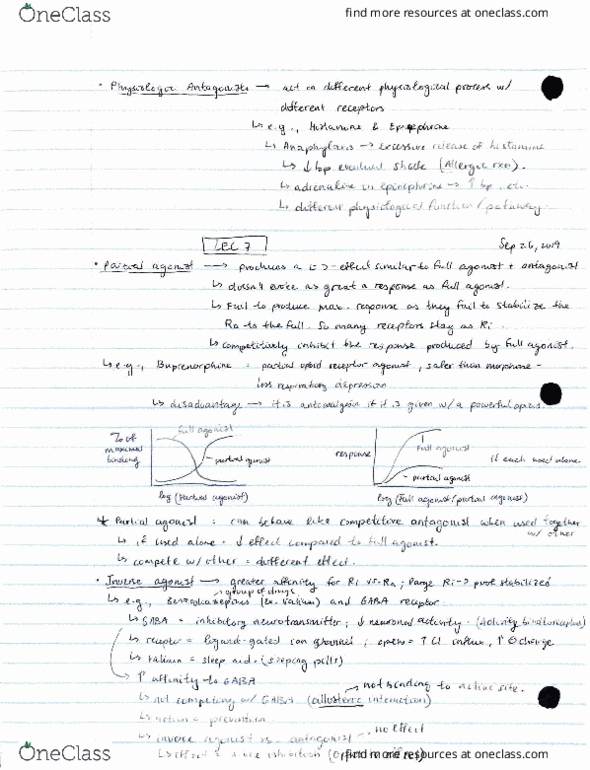 OneClass
find more resources at oneclass.com
• Physiologic Antagonists → act on different physiological process w/
different receptors
↳ e.g., Histamine & Epinephrine
↳ Anaphylaxis → excessive release of histamine
↳ ↓ bp eventual shock (Allergic rxn).
↳ adrenaline or epinephrine → ↑ bp, etc.
↳ different physiological function / pathway.
LEC 7
Sep 26, 2019
• Partial agonist → produces a effect similar to full agonist + antagonist
↳ doesn't evoke as great a response as full agonist.
↳ Fail to produce max. response as they fail to stabilize the
Ra to the full. So many receptors stay as Ri.
↳ competitively inhibit the response produced by full agonist.
↳ e.g., Buprenorphine = partial opioid receptor agonist, safer than morphine -
less respiratory depression
↳ disadvantage → it is antianalgesic if it is given w/ a powerful
% of
maximal
binding
full agonist
partial agonist
log (Partial agonist)
response
Full agonist
partial agonist
log (Full agonist/partial agonist)
if each used alone.
* Partial agonist : can behave like competitive antagonist when used together
w/ other
↳ if used alone = ↓ effect compared to full agonist.
↳ compete w/ other = different effect.
• Inverse agonist → greater affinity for Ri vs. Ra; large Ri → pool stabilized
group of drugs
↳ e.g., Benzodiazepines (ex. Valium) and GABA receptor.
↳ GABA = inhibitory neurotransmitter; ↓ neuronal activity.
↳ receptor = ligand-gated ion channel; opens = ↑ Cl influx, ↑ ⊖ charge
↳ Valium = sleep aid. (sleeping pills)
↑ affinity to GABA
not binding to active site.
↳ not competing w/ GABA (allosteric interaction)
no effect
↳ inverse agonist vs. antagonist
OneClass
find more resources at oneclass.com